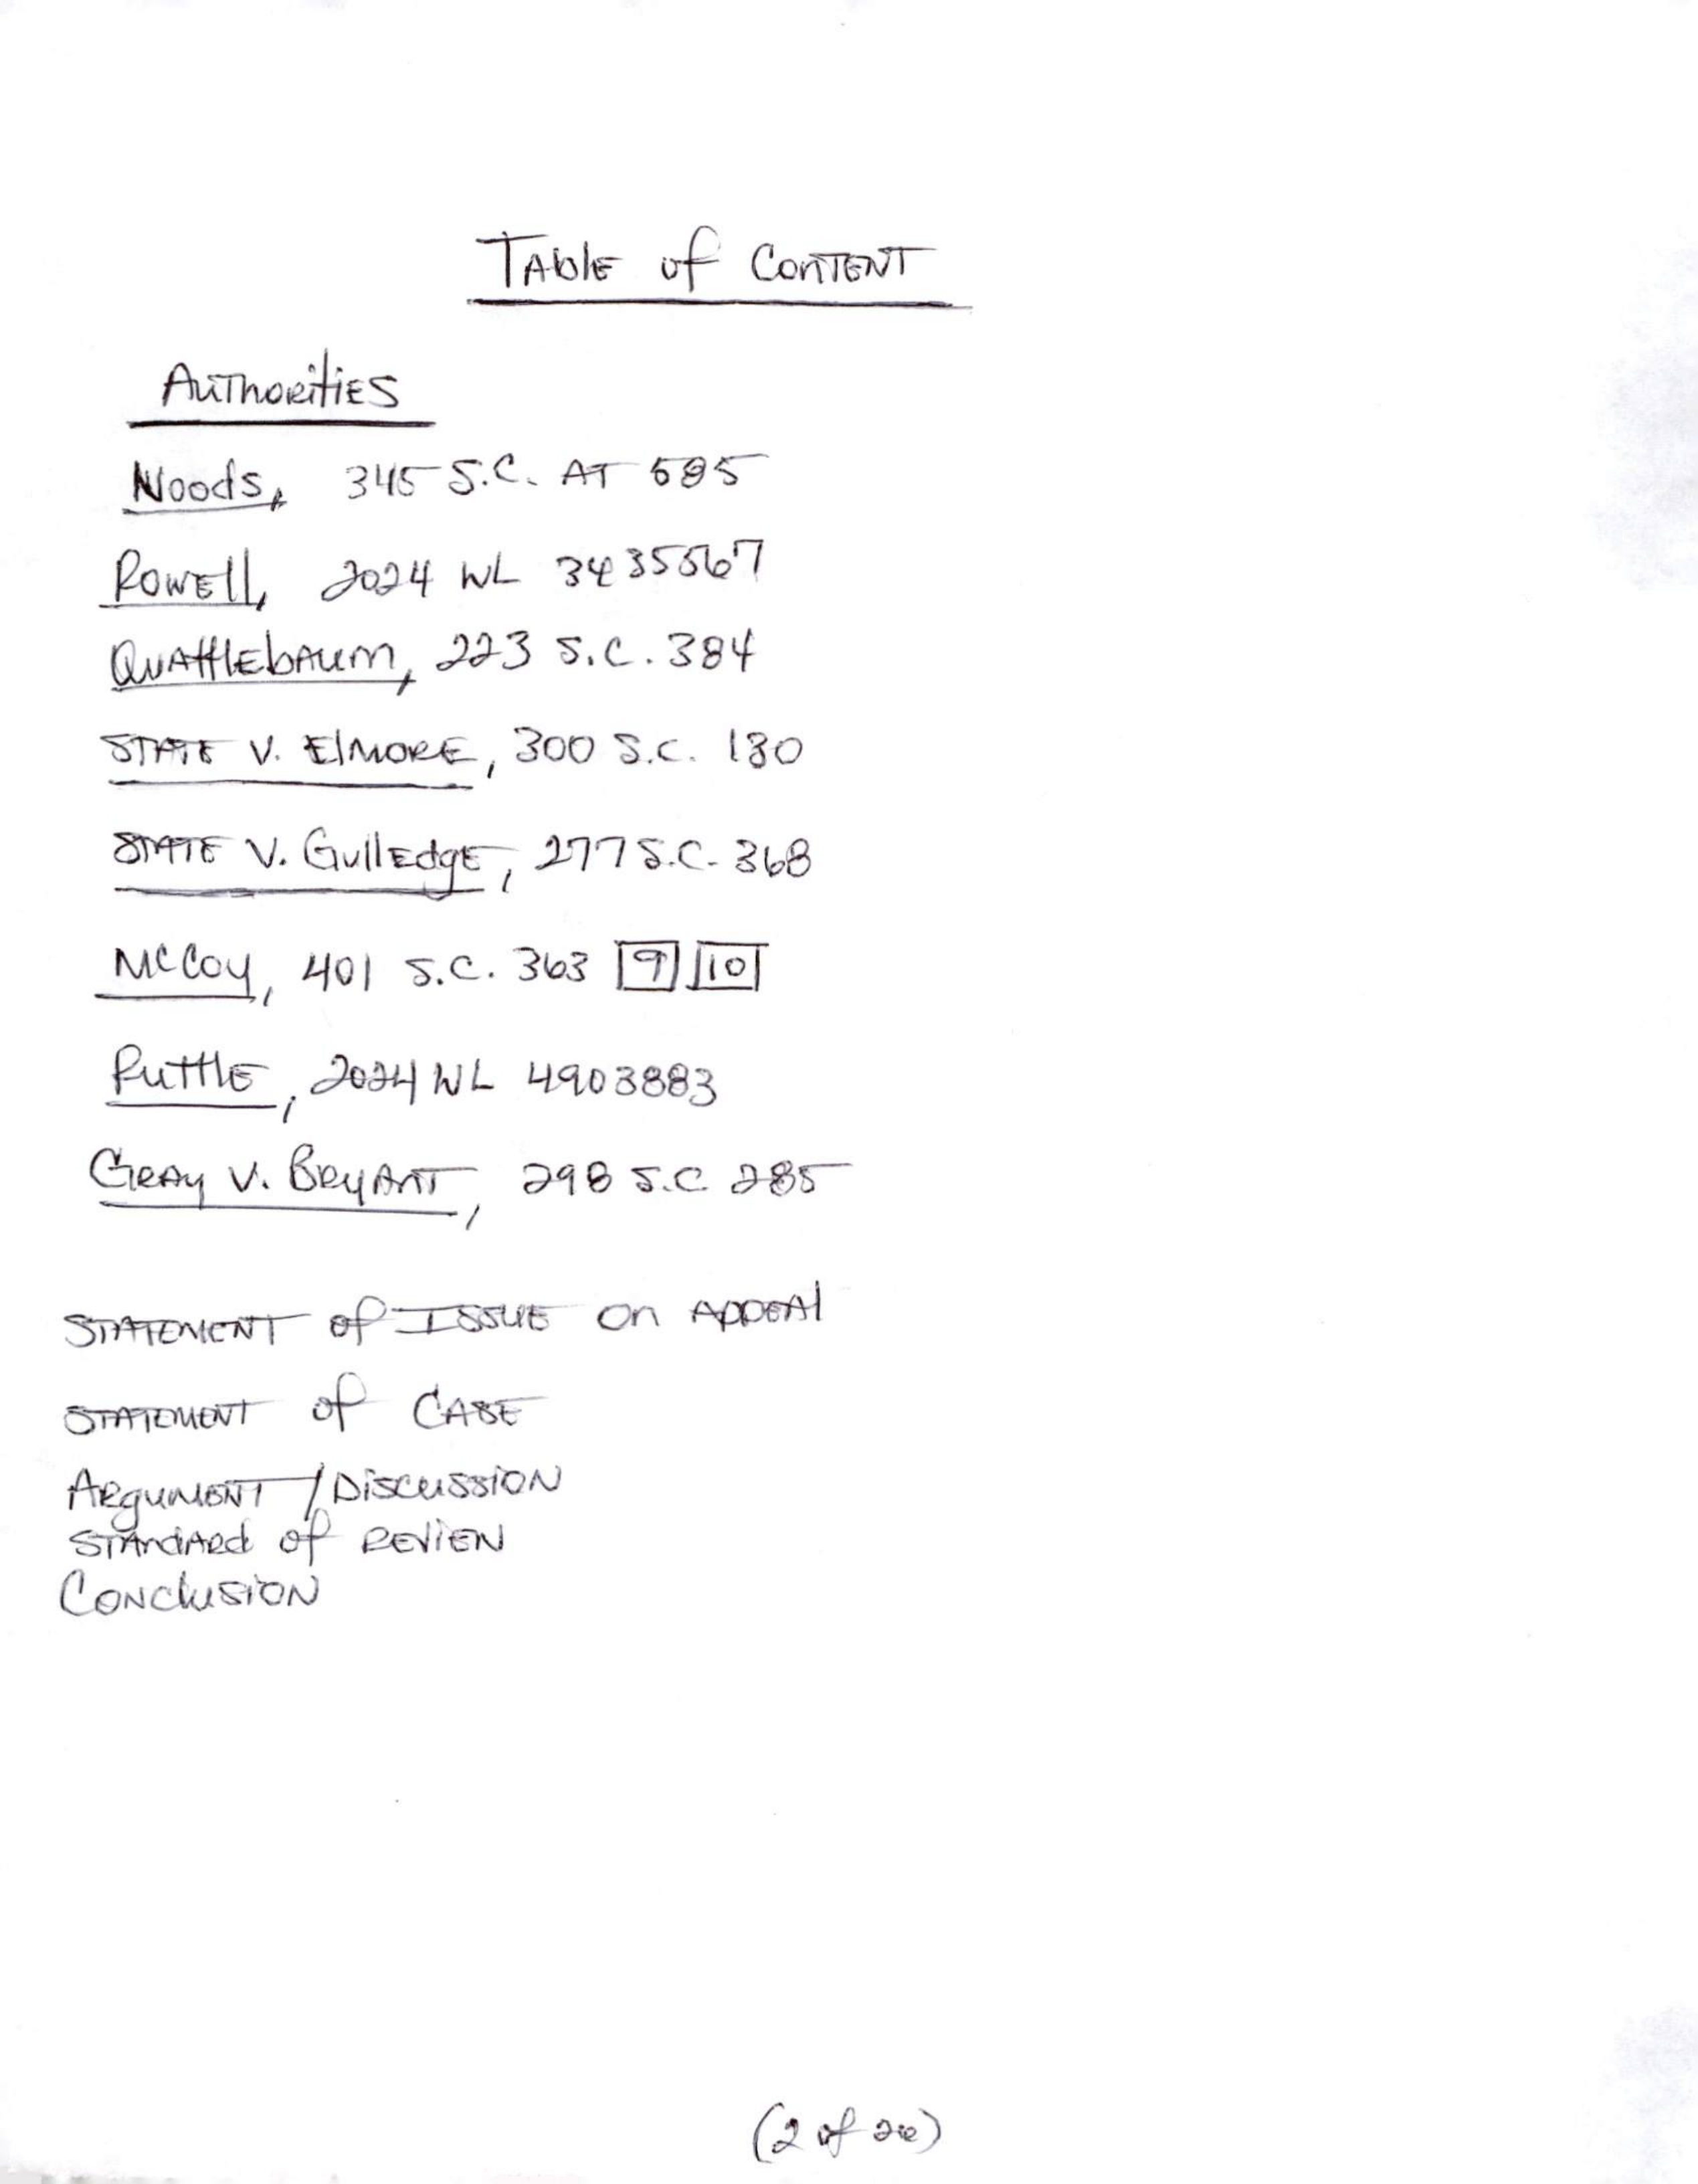 TABLE of CONTENT
AUTHORITIES
Woods, 345 S.C. AT 585
ROWEll, 2024 WL 3435567
QUATTLEbAUM, 223 S.C. 384
STATE V. ElMORE, 300 S.C. 130
STATE V. GullEdgE, 277 S.C. 368
McCoy, 401 S.C. 363 9 10
RuttlE, 2024 WL 4903883
GRAy V. BRyANT, 298 S.C. 285
STATEMENT of ISSUE on APPEAl
STATEMENT of CASE
ARgUMENT / DiSCUSSiON
STANdARd of REViEW
CONClUSiON
(2 of